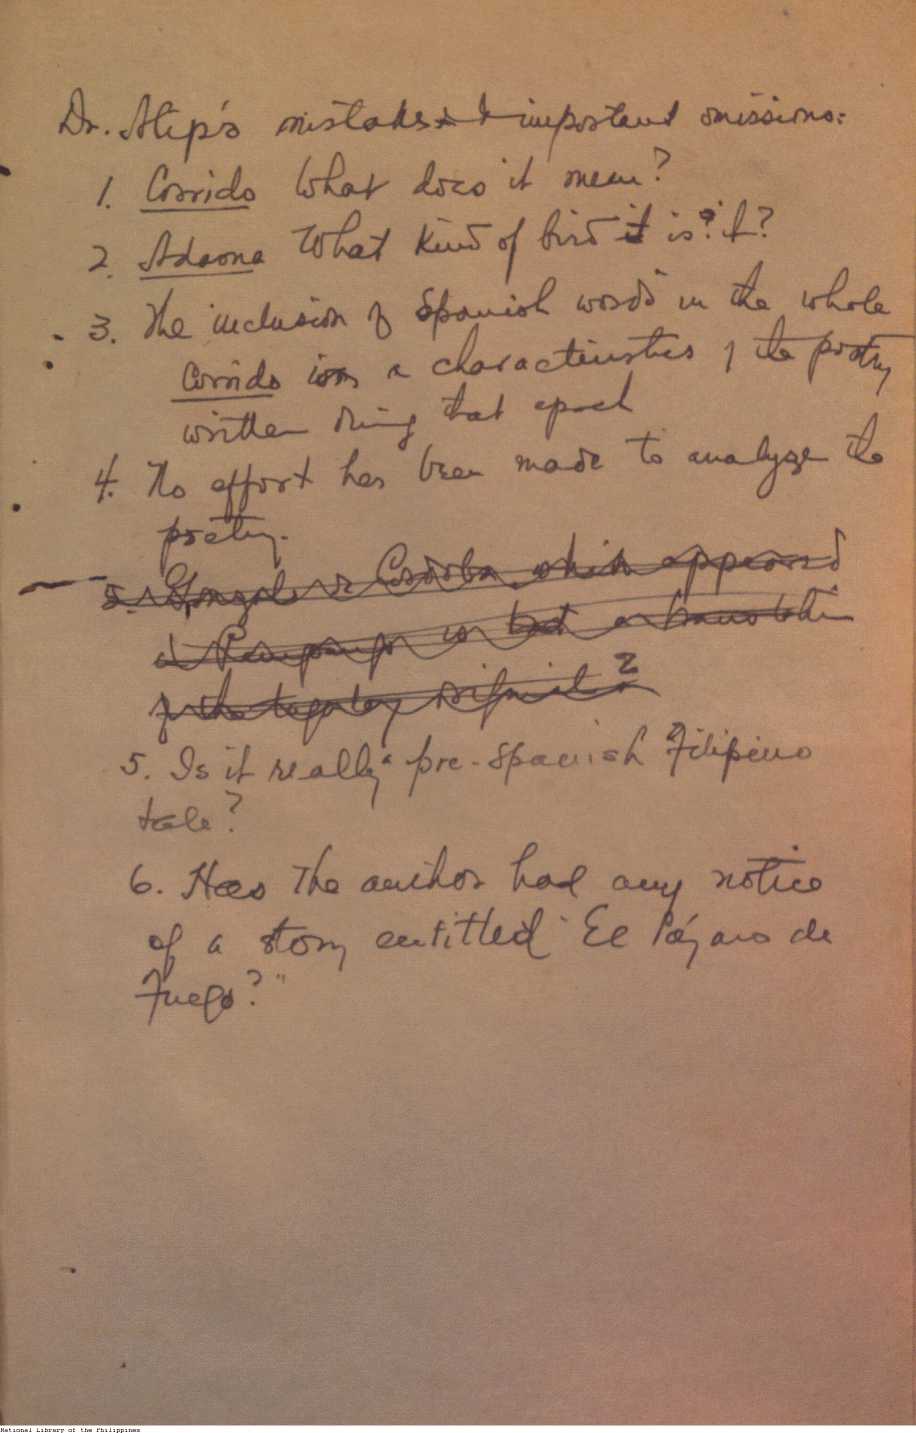 Dr. Alip's mistakes & important omissions:
1. Corrido What does it mean?
2. Adarna What kind of bird it is? it?
3. The inclusion of Spanish words in the whole
Corrido is a characteristics of the poetry
written during that epoch
4. No effort has been made to analyze the
poetry.
5. Gonzalo de Cordoba which appeared
in Pampango is but a translation
of the tagalog original
5. Is it really a pre-Spanish Filipino
tale?
6. Has the author had any notice
of a story entitled "El Pájaro de
Fuego?"
National Library of the Philippines